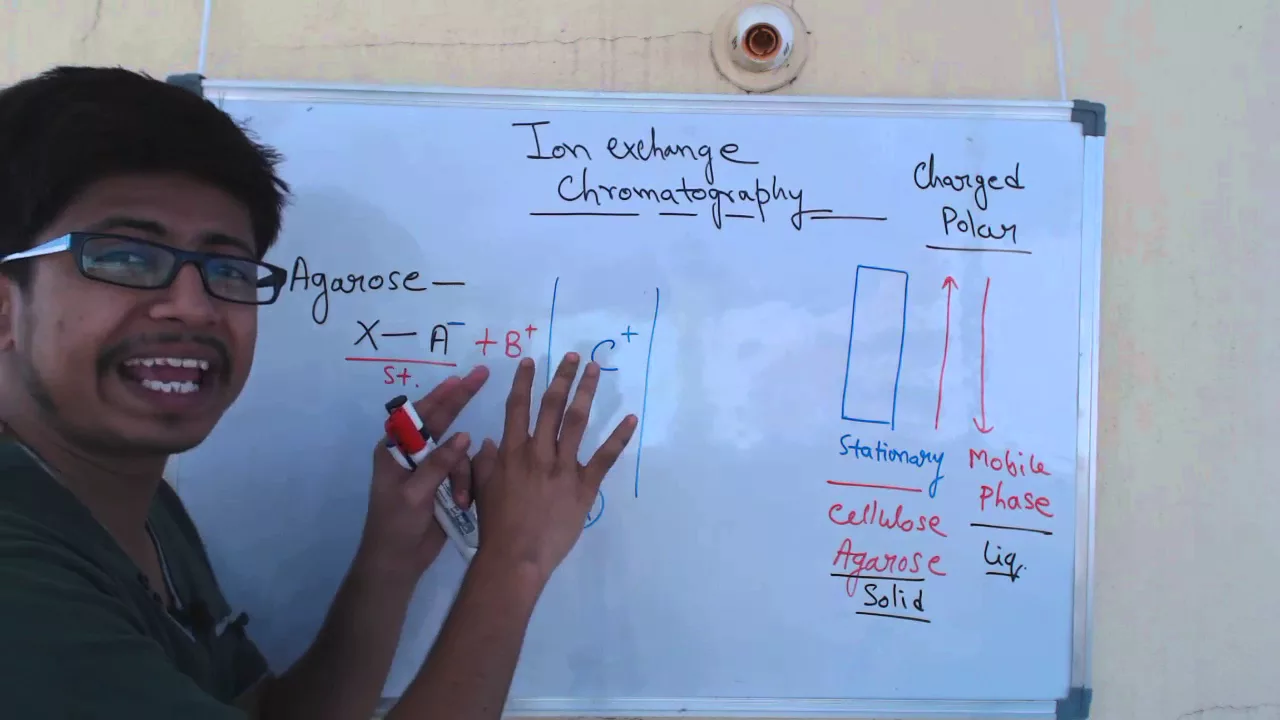 Ion exchange
Chromatography
Charged
Polar
Agarose —
X — A⁻ + B⁺
St.
C⁺
Stationary
Cellulose
Agarose
Solid
Mobile
Phase
Liq.